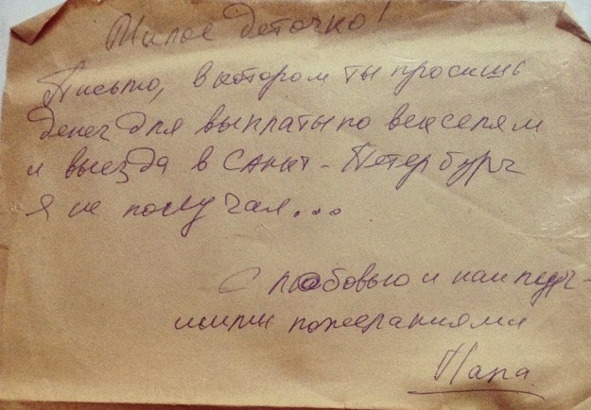 Милое деточко!
Письмо, в котором ты просишь
денег для выплаты по векселям
и выезда в Санкт-Петербург
я не получал...
С любовью и наилучш-
ими пожеланиями
Папа